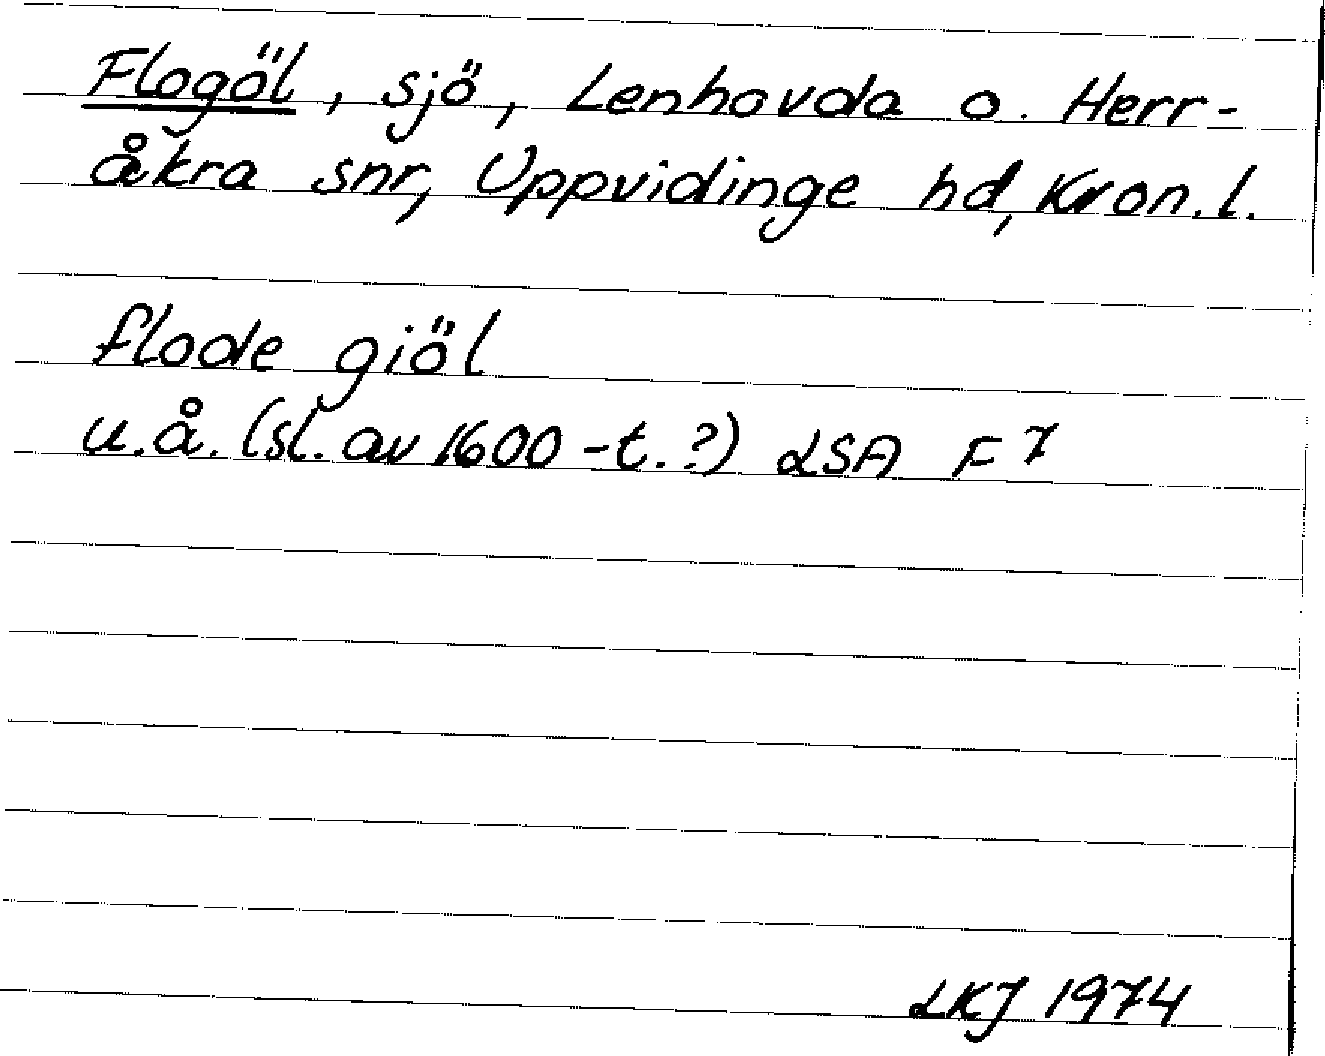 Flogöl, sjö, Lenhovda o. Herr-
åkra snr, Uppvidinge hd, Kron. l.
flode giöl
u.å. (sl. av 1600-t.?) LSA F 7
LKJ 1974